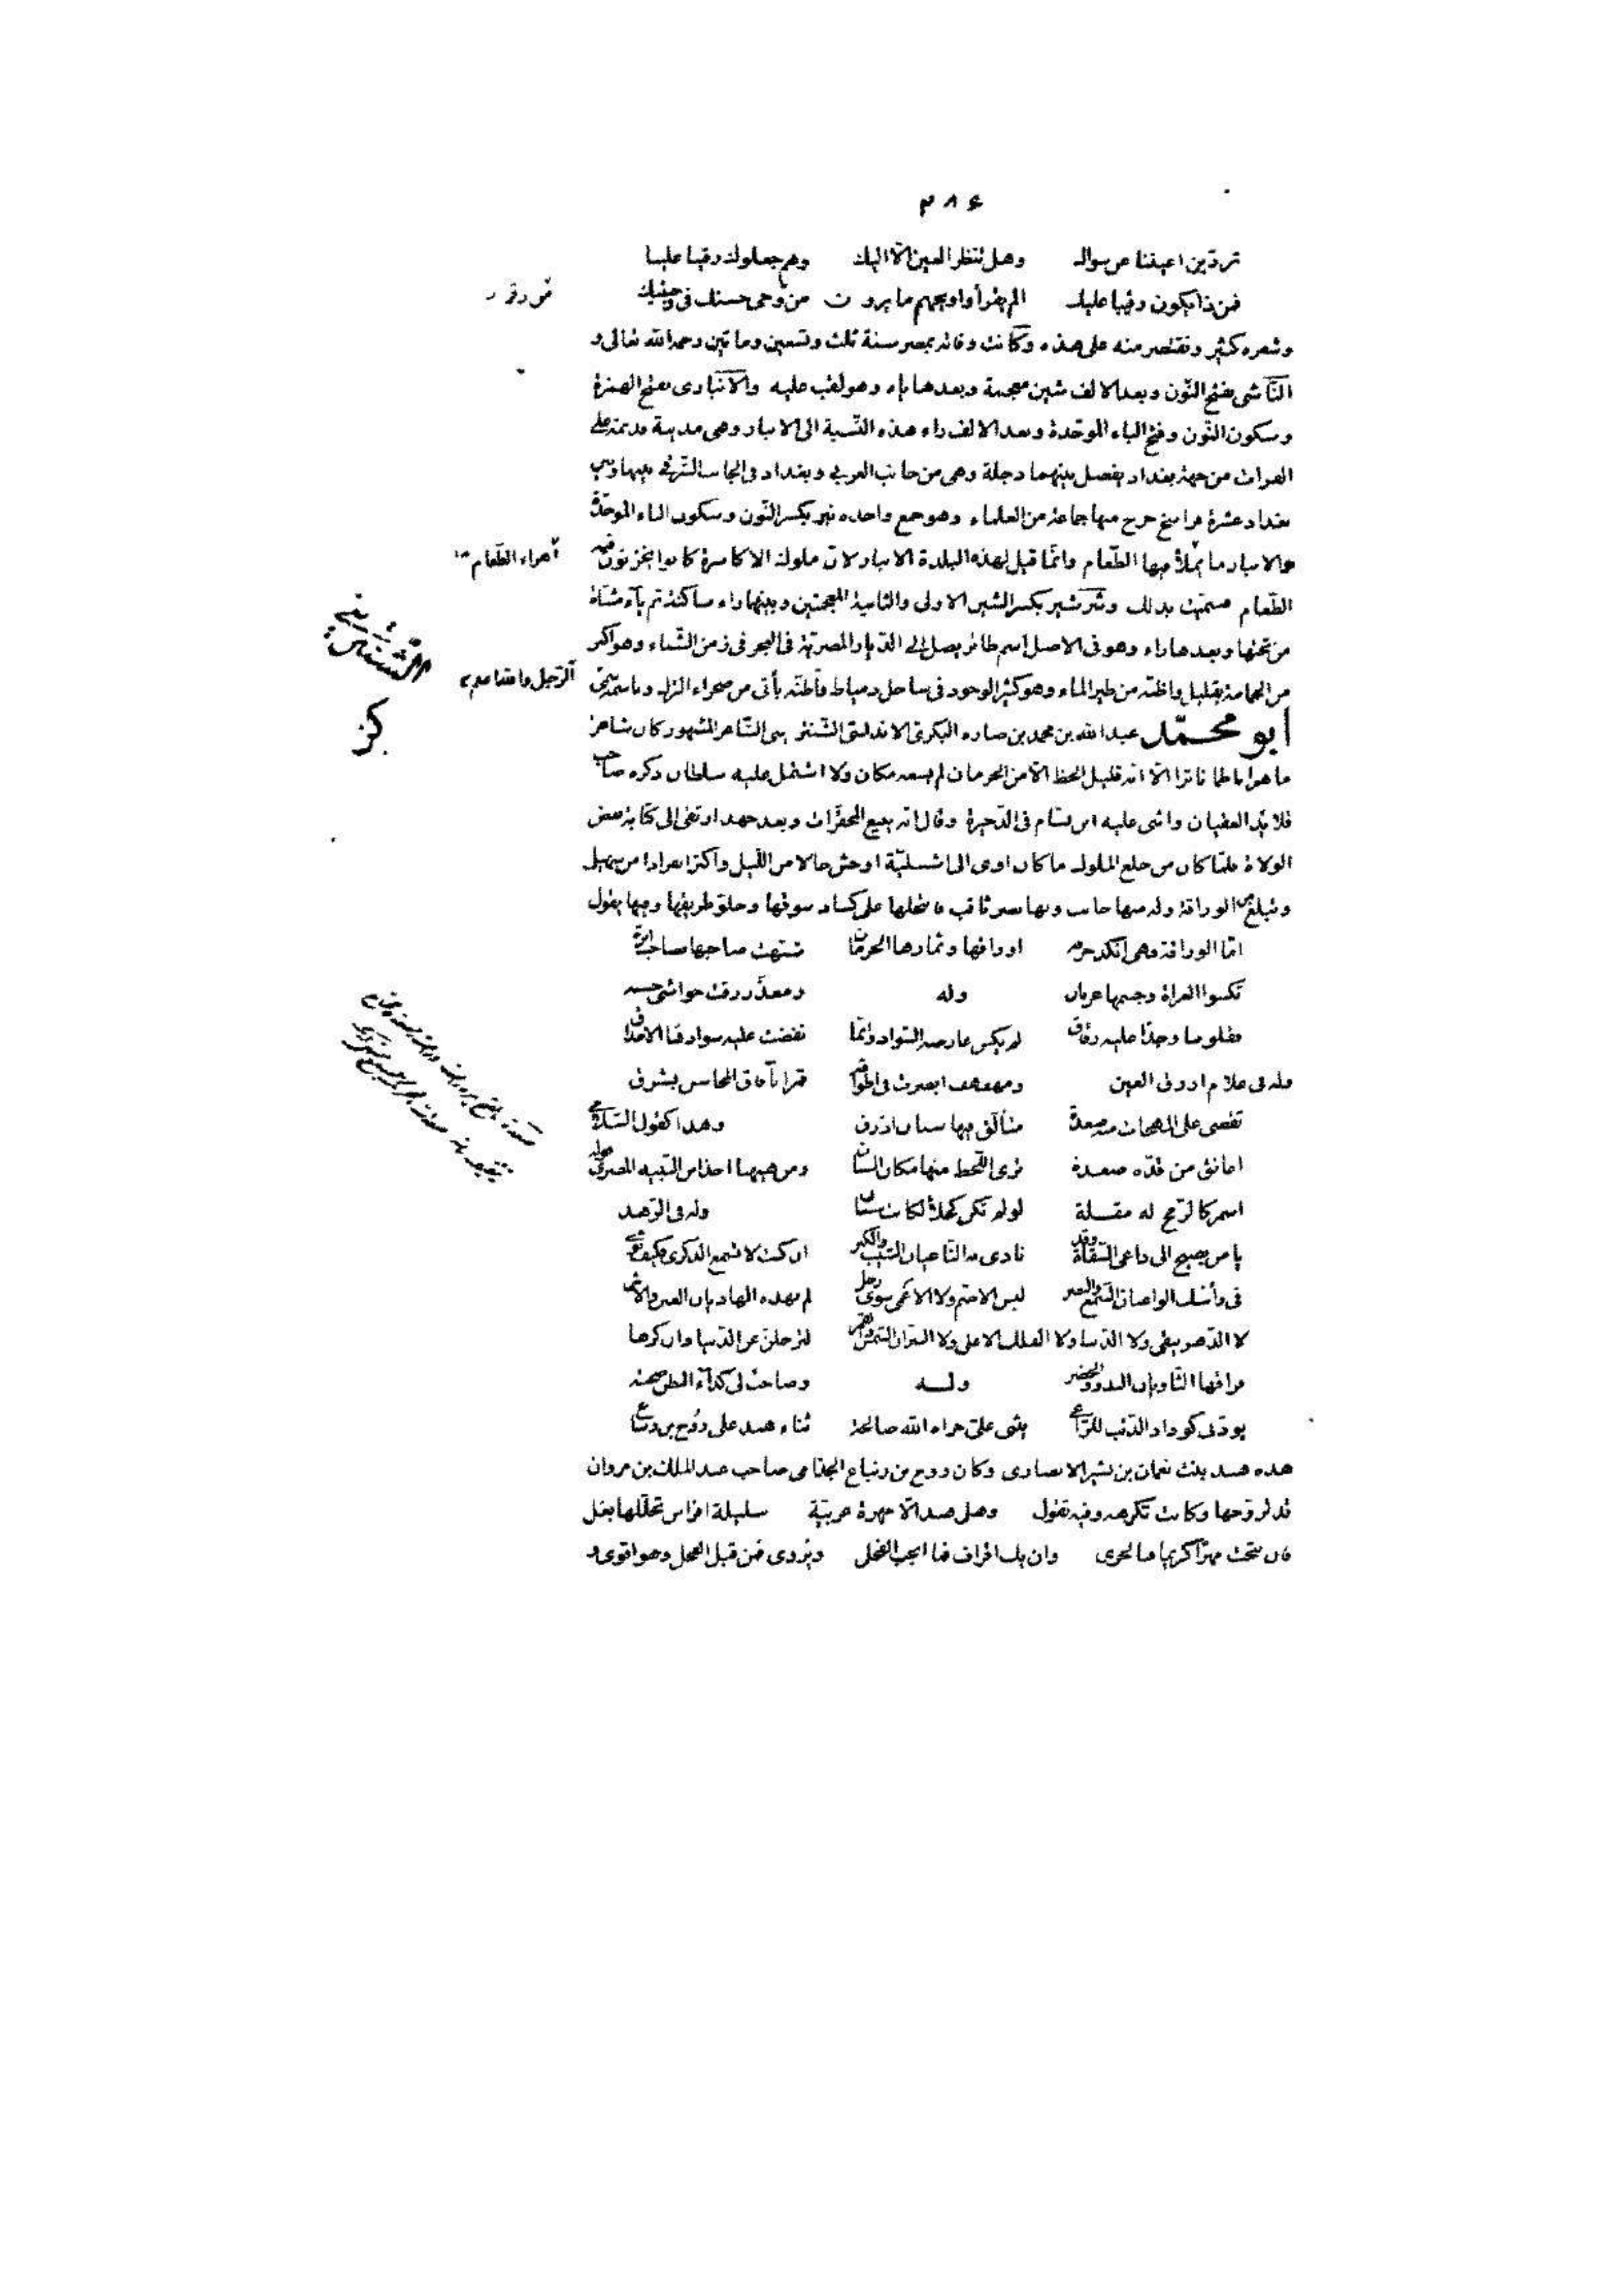 ٢٨٤
تردّين اعيننا عن سواك وهل تنظر العين الّا اليك وهم جعلوك رقيبا علينا
فمن ذا يكون رقيبا عليك الم يقرأوا ويحهم ما يرون من وحى حسنك فى وجنتيك
وشعره كثير ونقتصر منه على هذه وكانت وفاته بمصر سنة ثلث وتسعين وماتين رحمه الله تعالى و
النّاشى بفتح النّون وبعد الالف شين معجمة وبعدها ياء وهو لقب عليه والانبارى بفتح الهمزة
وسكون النّون وفتح الباء الموحّدة وبعد الالف راء هذه النّسبة الى الانبار وهى مدينة قديمة على
الفرات من جهة بغداد يفصل بينهما دجلة وهى من جانب الغربي وبغداد فى الجانب الشّرقي بينها وبين
بغداد عشرة فراسخ خرج منها جماعة من العلماء وهو جمع واحده نبر بكسر النّون وسكون الباء الموحّدة
والانبار ما يملأ فيها الطّعام وانّما قيل لهذه البلدة الانبار لان ملوك الاكاسرة كانوا يخزنون فيه
اهراء الطّعام
الطّعام فسمّيت بذلك وشرشير بكسر الشين الاولى والثانية المعجمتين وبينهما راء ساكنة ثم ياء مثنّاة
من تحتها وبعدها راء وهو فى الاصل اسم طائر يصل إلى الدّيار المصريّة فى البحر فى زمن الشّتاء وهو اكبر
من الحمامة بقليل واظنّه من طير الماء وهو كثير الوجود فى ساحل دمياط واظنّه يأتى من صحراء الترك وباسمه سمّى
الرّجل
ابو محمّد عبد الله بن محمد بن صاره البكرىّ الاندلسىّ الشّنترينى الشّاعر المشهور كان شاعرا
الشّنترينى
ماهرا ناظما ناثرا الّا انّه قليل الحظ الّا من الحرمان لم يسعه مكان ولا اشتمل عليه سلطان ذكره صاحب
قلائد العقيان واثنى عليه ابن بسّام فى الذّخيرة وقال انّه يبيع المحقّرات وبعد جهد ارتقى الى كتابة بعض
الولاة فلمّا كان من خلع الملوك ما كان اوى الى اشبيليّة اوحش حالا من اللّيل واكثر انفرادا من سهيل
وتبلّغ من الوراقة وله منها جانب وبها بصر ثاقب فانتحلها على كساد سوقها وخلوّ طريقها وفيها يقول
امّا الوراقة وهى انكد حرفة اوراقها وثمارها الحرمان شبّهت صاحبها بصاحب ابرة
تكسوا العراة وجسمها عريان وله ومعذّر رقت حواشى حسنه
فقلوبنا وجدا عليه رقاق لم يكس عارضه السّواد وانّما نفضت عليه سوادها الاحداق
وله فى غلام ازرق العين ومهفهف ابصرت فى اطواقه قمرا بآفاق المحاسن يشرق
تقضى على المهجات منه صعدة متألّق فيها سنان ازرق وهذا كقول السّلامى
اعانق من قدّه صعدة ترى اللّحظ منها مكان السّنان ومن هيهنا اخذ ابن النّبيه المصرىّ قوله
اسمر كالرّمح له مقلة لو لم تكن كحلاء كانت سنان وله فى الزّهد
يا من يصيح الى داعى السّقاة وقد نادى به النّاعيان الشّيب والكبر ان كنت لا تسمع الذكرى ففيم ثوى
فى رأسك الواعيان السّمع والبصر ليس الاصمّ ولا الاعمى سوى رجل لم يهده الهاديان العين والاثر
لا الدّهر يبقى ولا الدّنيا ولا الفلك الاعلى ولا النيّران الشّمس والقمر لترحلنّ عن الدّنيا وان كرها
فراقها الثّاويان البدو والحضر وله وصاحب لى كداء البطن صحبته
يودّنى كوداد الذّئب للرّاعى يثنى علىّ جزاه الله صالحة ثناء هند على روح بن زنباع
هذه هند بنت نعمان بن بشير الانصارى وكان روح بن زنباع الجذامى صاحب عبد الملك بن مروان
قد تزوّجها وكانت تكرهه وفيه تقول وهل هند الّا مهرة عربيّة سليلة افراس تحلّلها بغل
فان نتجت مهرا كريما فبالحرى وان يك اقراف فما انجب الفحل ويروى فمن قبل الفحل وهو اقوى و